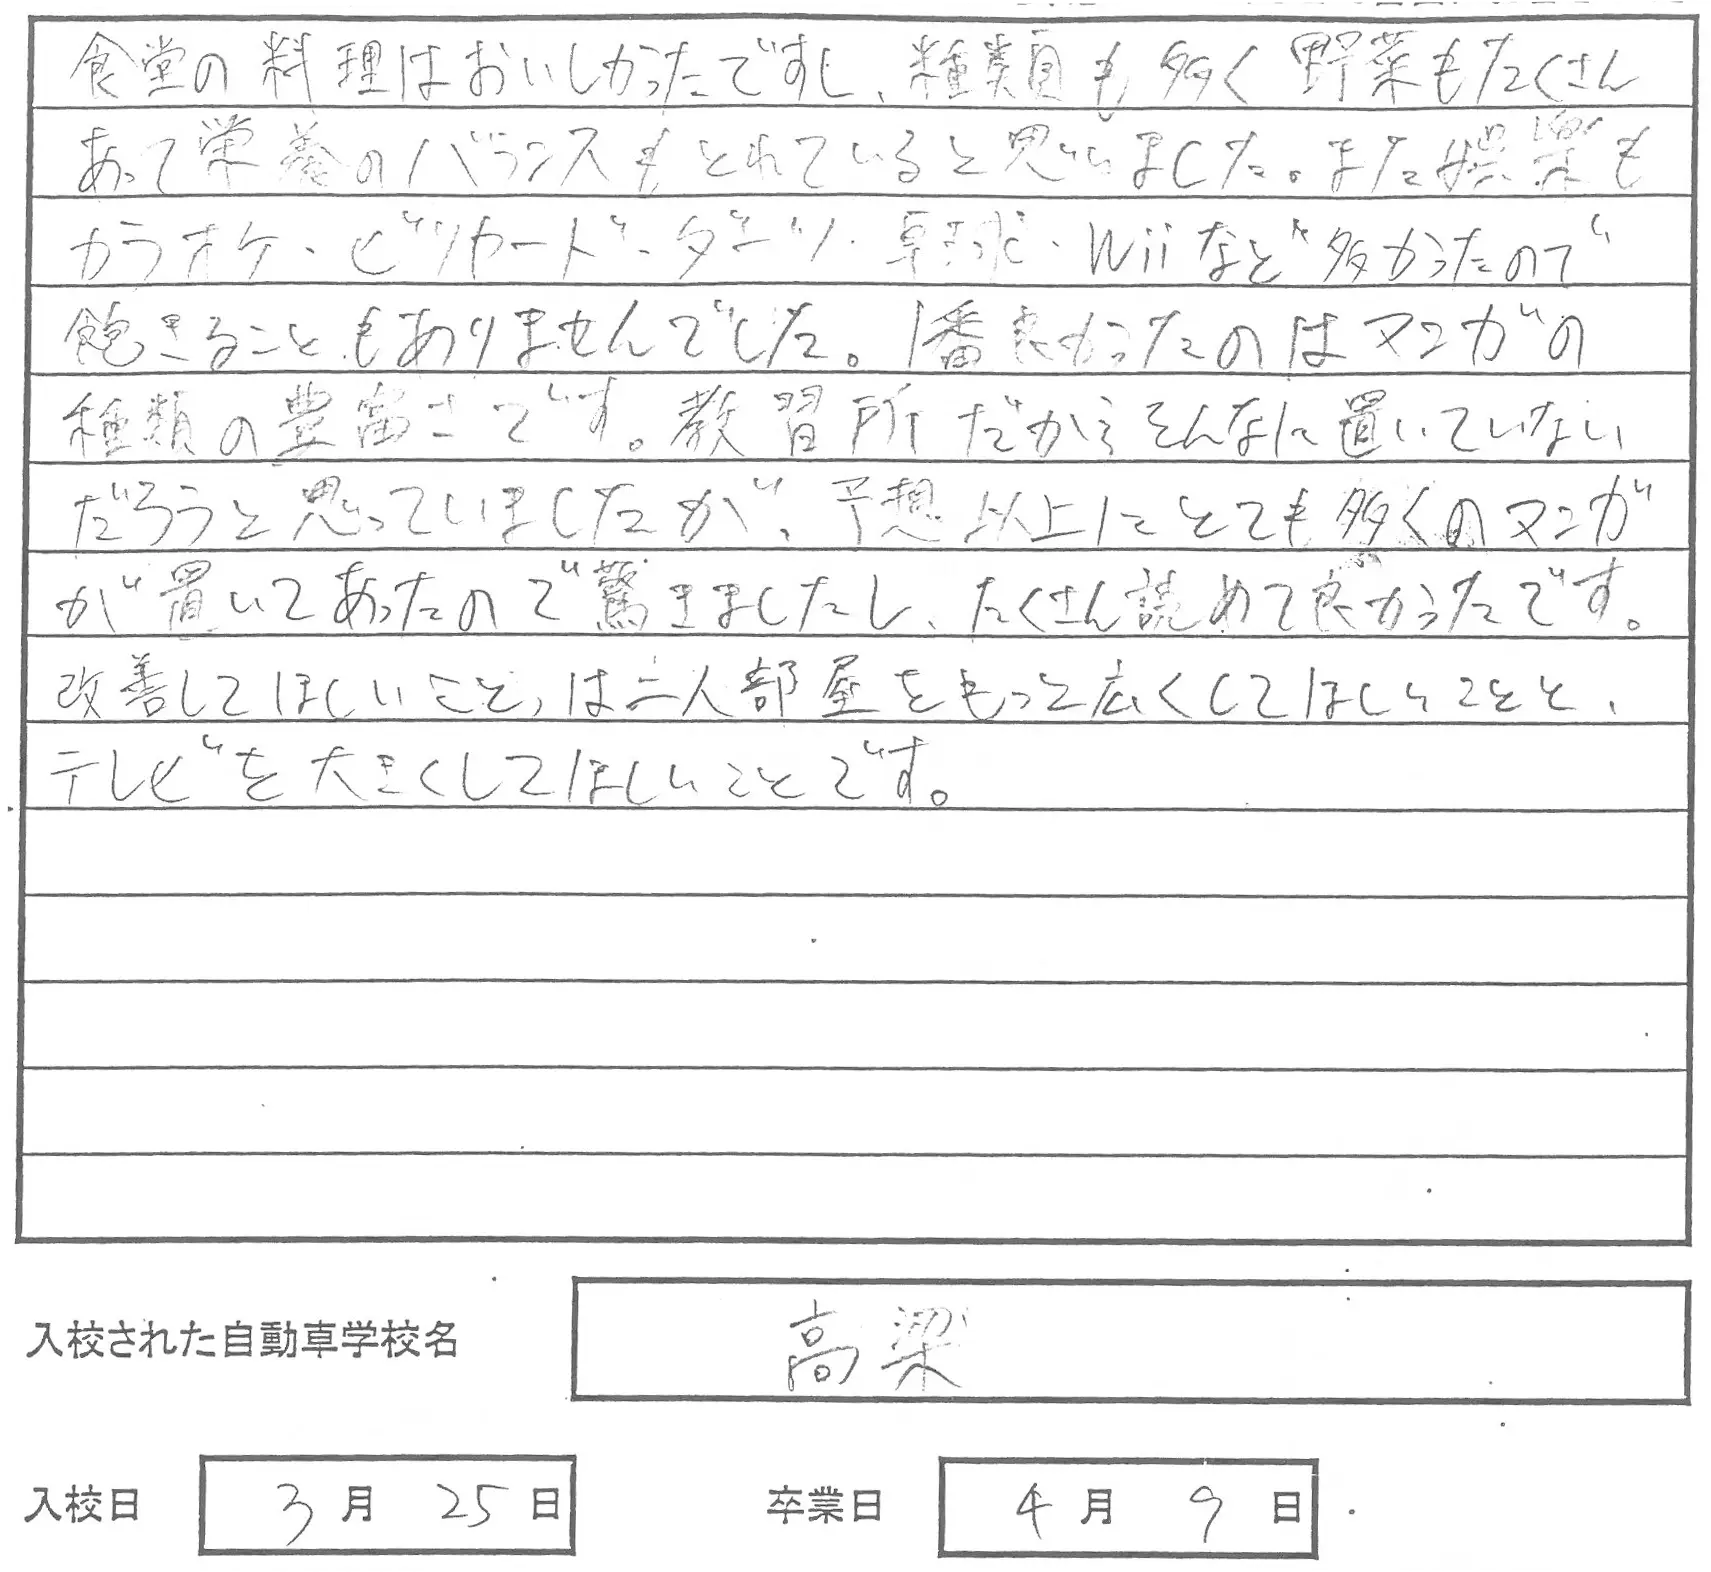 食堂の料理はおいしかったですし、種類も多く野菜もたくさん
あって栄養のバランスもとれていると思いました。また娯楽も
カラオケ・ビリヤード・ダーツ・卓球・Wiiなど多かったので
飽きることもありませんでした。1番良かったのはマンガの
種類の豊富さです。教習所だからそんなに置いていない
だろうと思っていましたが、予想以上にとても多くのマンガ
が置いてあったので驚きましたし、たくさん読めて良かったです。
改善してほしいことは二人部屋をもっと広くしてほしいことと、
テレビを大きくしてほしいことです。
入校された自動車学校名 高梁
入校日 3月25日 卒業日 4月9日